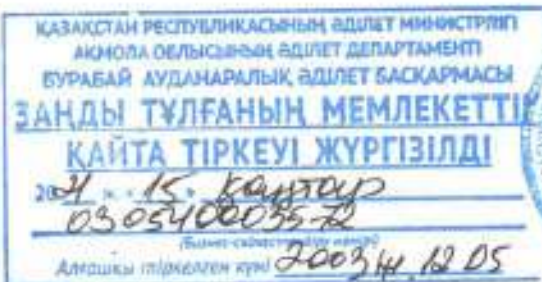 ҚАЗАҚСТАН РЕСПУБЛИКАСЫНЫҢ ӘДІЛЕТ МИНИСТРЛІГІ
АҚМОЛА ОБЛЫСЫНЫҢ ӘДІЛЕТ ДЕПАРТАМЕНТІ
БУРАБАЙ АУДАНАРАЛЫҚ ӘДІЛЕТ БАСҚАРМАСЫ
ЗАҢДЫ ТҰЛҒАНЫҢ МЕМЛЕКЕТТІК
ҚАЙТА ТІРКЕУІ ЖҮРГІЗІЛДІ
2021 « 15 » қаңтар
030540003572
(Бизнес-сәйкестендіру нөмірі)
Алғашқы тіркелген күні 2003 ж 12 05